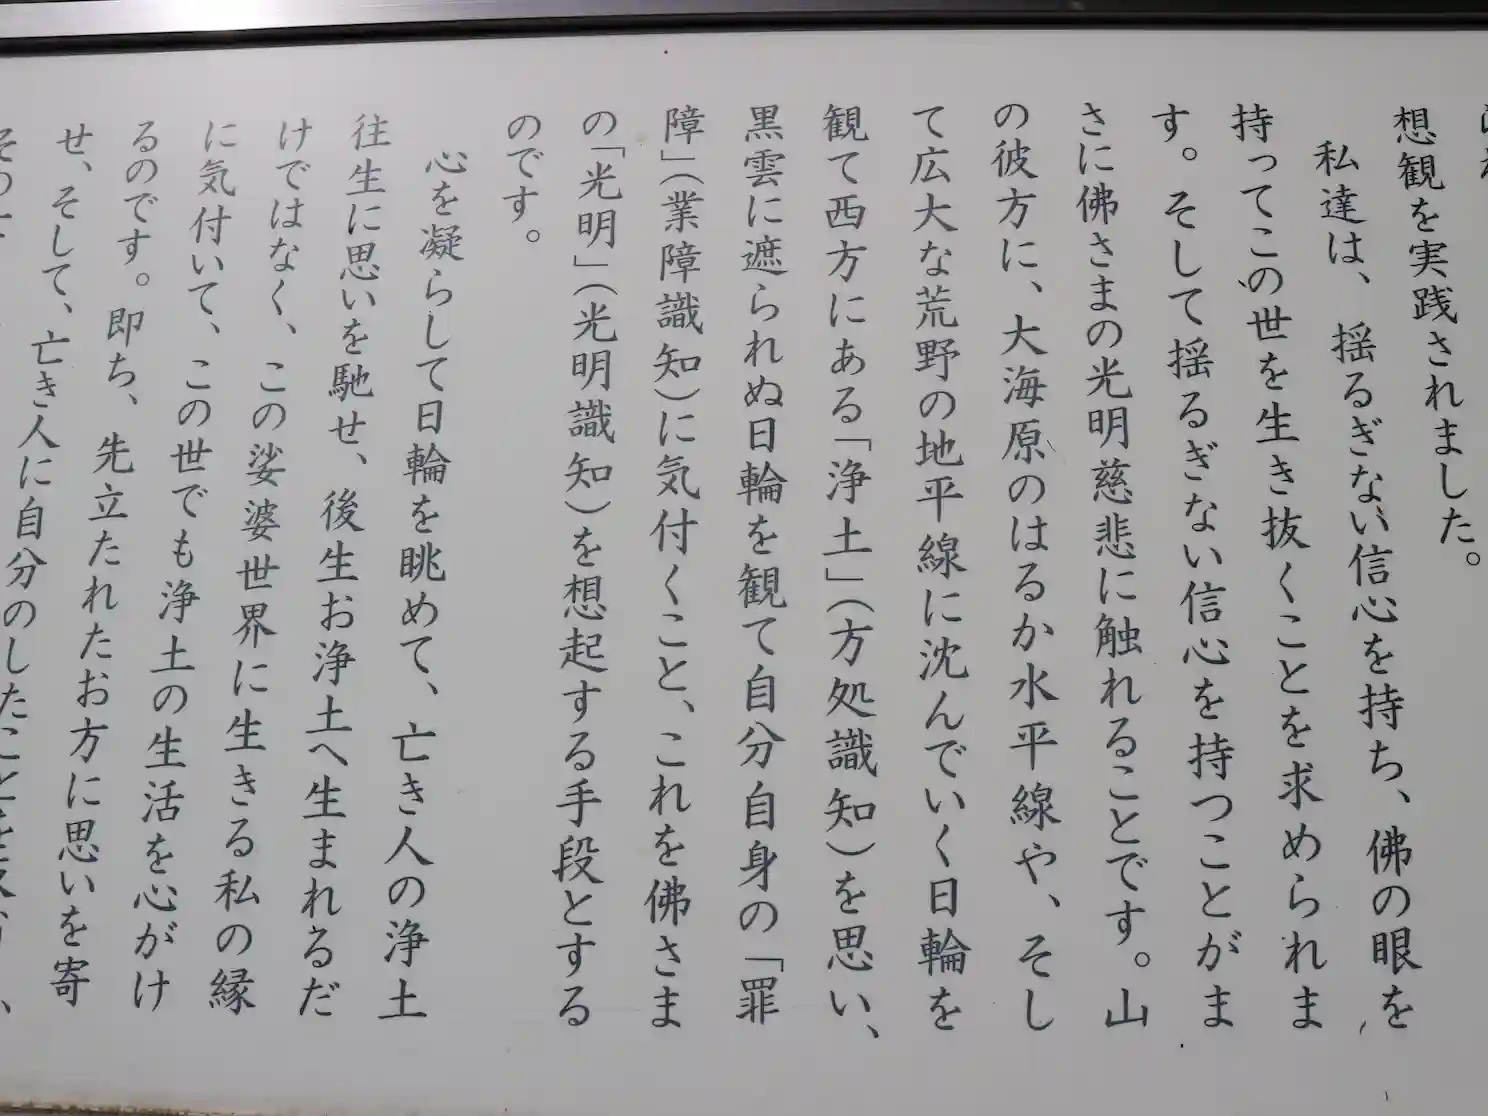 想観を実践されました。
私達は、揺るぎない信心を持ち、佛の眼を
持ってこの世を生き抜くことを求められま
す。そして揺るぎない信心を持つことがま
さに佛さまの光明慈悲に触れることです。山
の彼方に、大海原のはるか水平線や、そし
て広大な荒野の地平線に沈んでいく日輪を
観て西方にある「浄土」（方処識知）を思い、
黒雲に遮られぬ日輪を観て自分自身の「罪
障」（業障識知）に気付くこと、これを佛さま
の「光明」（光明識知）を想起する手段とする
のです。
心を凝らして日輪を眺めて、亡き人の浄土
往生に思いを馳せ、後生お浄土へ生まれるだ
けではなく、この娑婆世界に生きる私の縁
に気付いて、この世でも浄土の生活を心がけ
るのです。即ち、先立たれたお方に思いを寄
せ、そして、亡き人に自分のしたことを